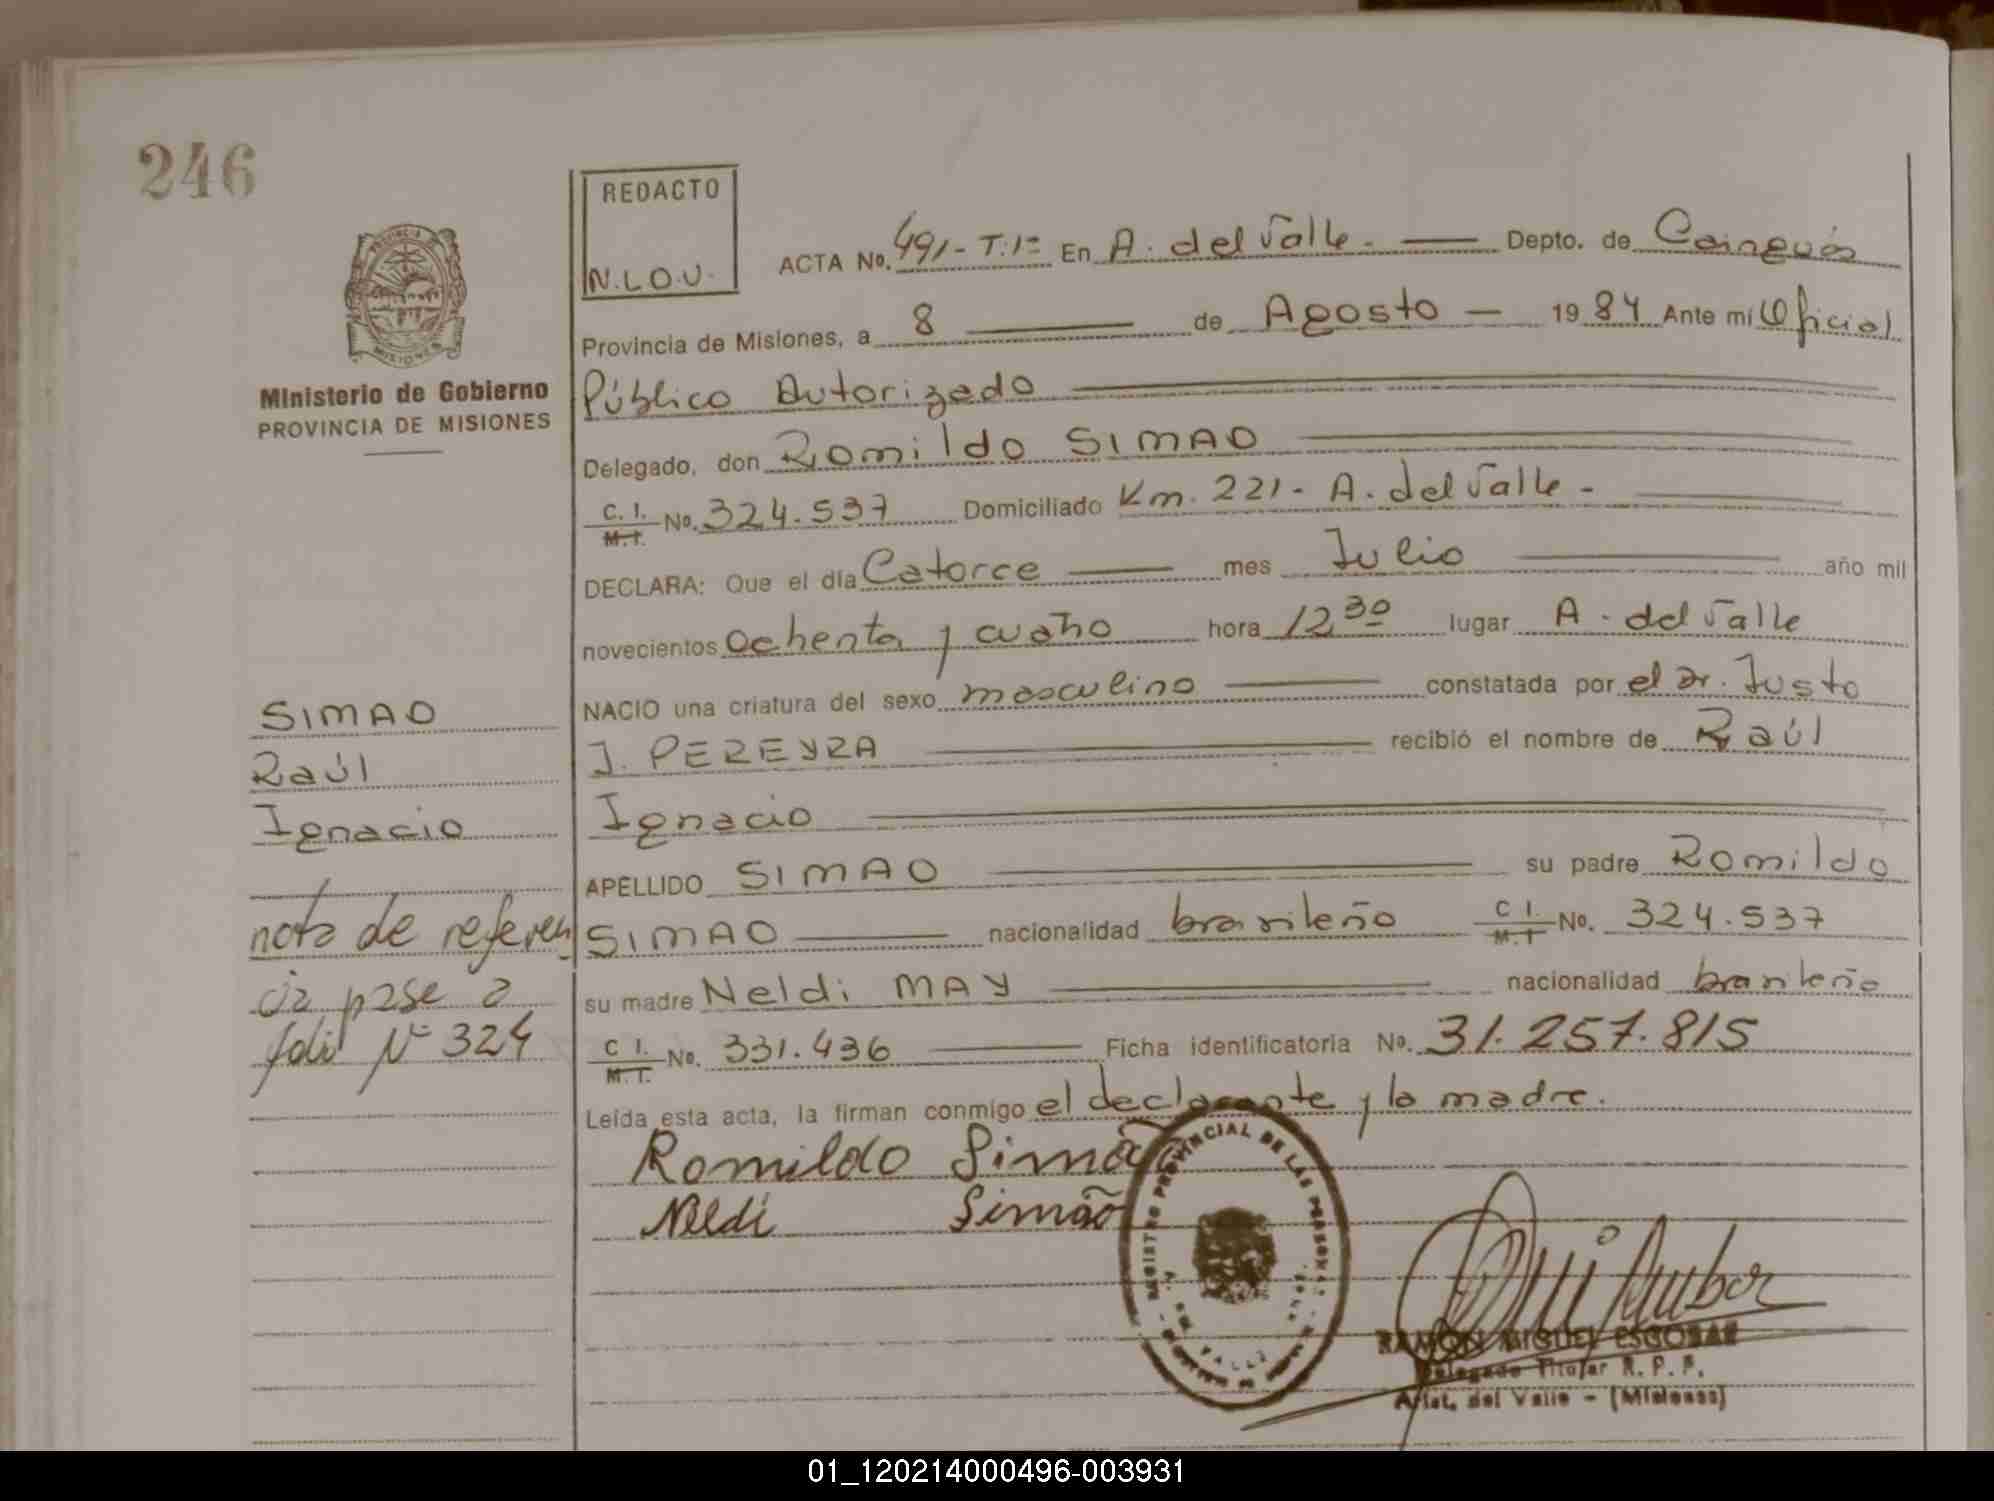 246
REDACTO
N.L.O.U.
PROVINCIA DE
MISIONES
Ministerio de Gobierno
PROVINCIA DE MISIONES
ACTA No. 491-T:1º En A. del Valle. Depto. de Cainguás
Provincia de Misiones, a 8 de Agosto 1984 Ante mí Oficial
Público Autorizado
Delegado, don Romildo SIMAO
C. I. M. I. No. 324.537 Domiciliado Km. 221 - A. del Valle -
DECLARA: Que el día Catorce mes Julio año mil
novecientos ochenta y cuatro hora 12 30 lugar A. del Valle
NACIO una criatura del sexo masculino constatada por el Dr. Justo
J. PEREYRA recibió el nombre de Raúl
Ignacio
APELLIDO SIMAO su padre Romildo
SIMAO nacionalidad brasileño C I. M. I No. 324.537
su madre Neldi MAY nacionalidad brasileña
C I. M. I. No. 331.436 Ficha identificatoria No. 31.257.815
Leída esta acta, la firman conmigo el declarante y la madre.
Romildo Simão
Neldi Simão
SIMAO
Raúl
Ignacio
nota de referen
cia pase a
folio Nº 324
REGISTRO PROVINCIAL DE LAS PERSONAS
VALLE
RAMON MIGUEL ESCOBAR
Delegado Titular R. P. P.
Arist. del Valle - (Misiones)
01_120214000496-003931